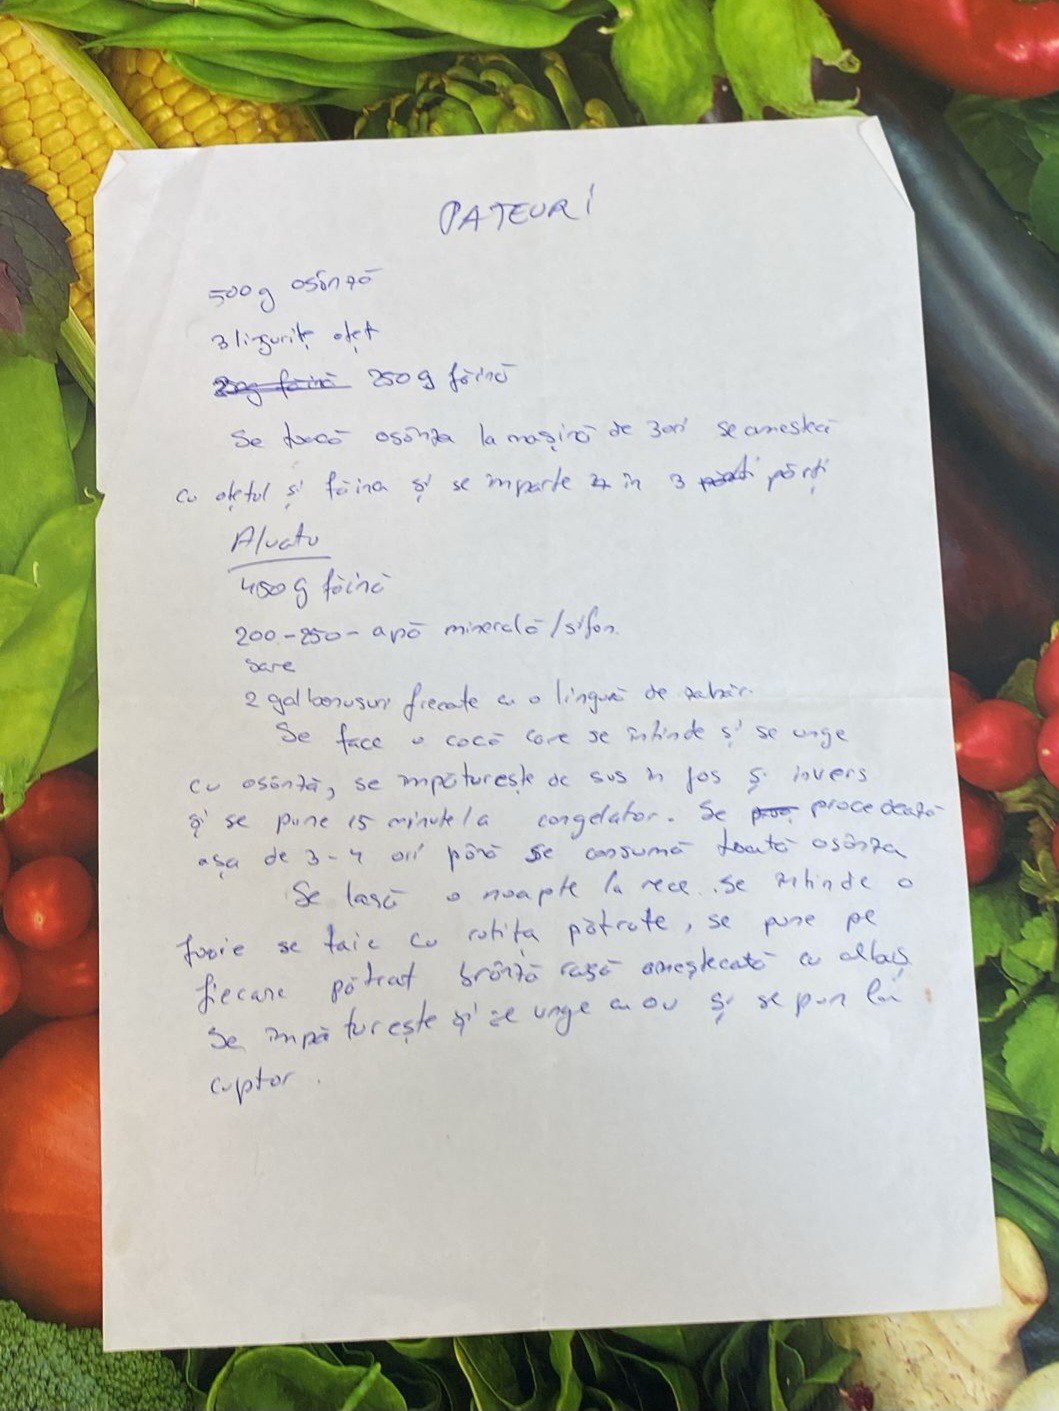 PATEURI
500g osânză
3 lingurițe oțet
250g făină
Se toacă osânza la mașină de 3 ori se amestecă
cu oțetul și făina și se împarte în 3 părți
Aluatu
450g făină
200-250- apă minerală/sifon.
sare
2 galbenușuri frecate cu o lingură de zahăr.
Se face o cocă care se întinde și se unge
cu osânză, se împăturește de sus în jos și invers
și se pune 15 minute la congelator. Se procedează
așa de 3-4 ori până se consumă toată osânza
Se lasă o noapte la rece. Se întinde o
foaie se taie cu rotița pătrate, se pune pe
fiecare pătrat brânză rasă amestecată cu albuș
Se împăturește și se unge cu ou și se pun la
cuptor.